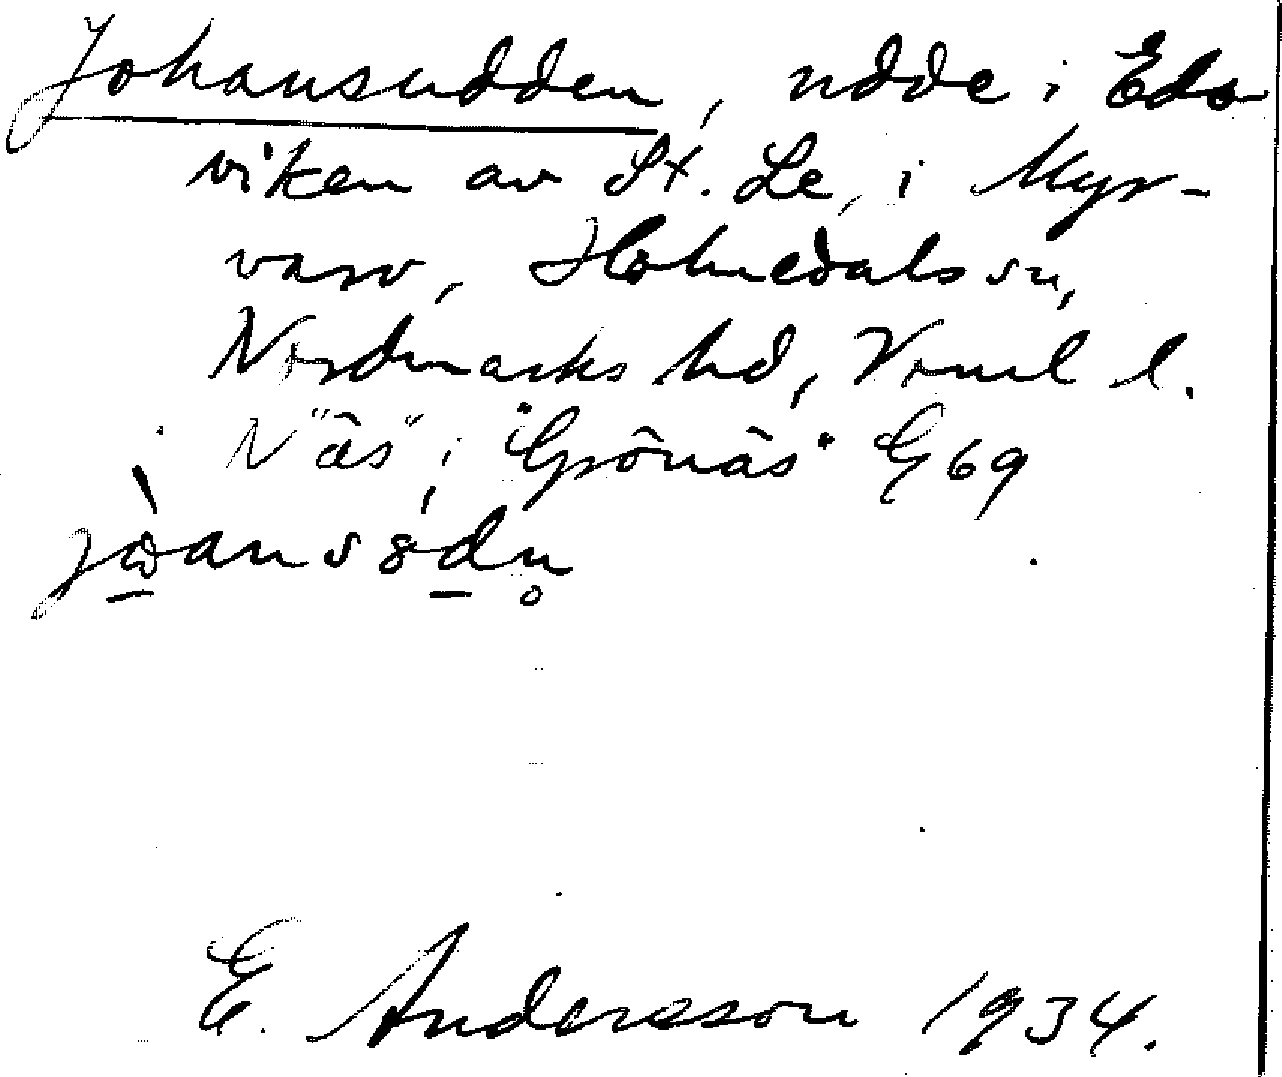 Johansudden, udde i Eds-
viken av St. Le, i Myr-
varv, Holmedals sn,
Nordmarks hd, Vrml l.
N "ås" i "Grönås" G 69
E. Andersson 1934.